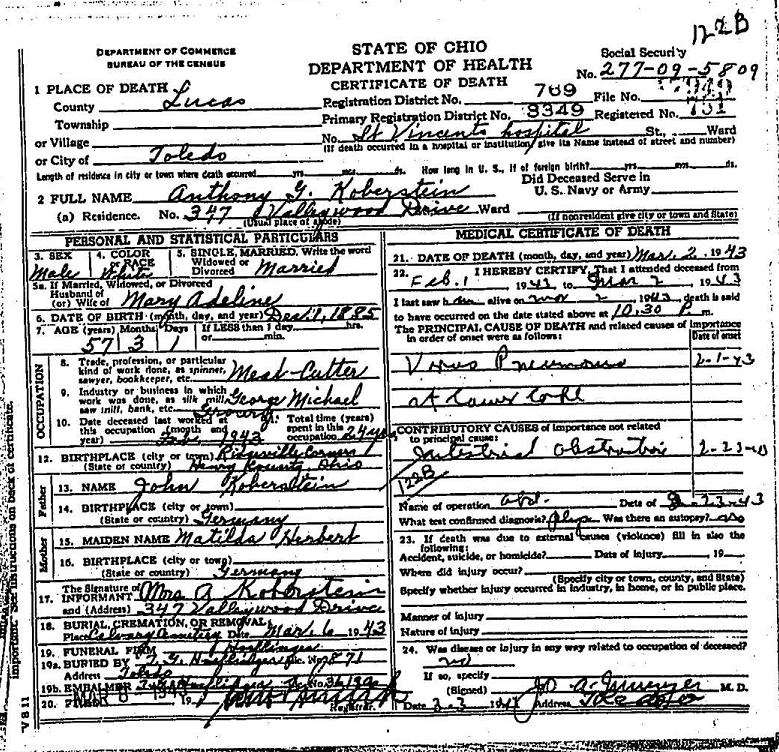 122B
DEPARTMENT OF COMMERCE
BUREAU OF THE CENSUS
STATE OF OHIO
DEPARTMENT OF HEALTH
CERTIFICATE OF DEATH
Social Security
No. 277-09-5809
1 PLACE OF DEATH
County Lucas
Township
or Village
or City of Toledo
Registration District No. 769 File No.
Primary Registration District No. 8349 Registered No.
No. St Vincents hospital St., Ward
(If death occurred in a hospital or institution, give its Name instead of street and number)
Length of residence in city or town where death occurred yrs. mos. ds. How long in U. S., if of foreign birth? yrs. mos. ds.
Did Deceased Serve in
U. S. Navy or Army
2 FULL NAME Anthony G. Koberstein
(a) Residence. No. 347 Valleywood Drive Ward
(Usual place of abode) (If nonresident give city or town and State)
PERSONAL AND STATISTICAL PARTICULARS
3. SEX Male
4. COLOR or RACE White
5. SINGLE, MARRIED, Write the word
Widowed or Divorced Married
5a. If Married, Widowed, or Divorced
Husband of
(or) Wife of Mary Adeline
6. DATE OF BIRTH (month, day, and year) Dec. 1, 1885
7. AGE (years) Months Days If LESS than 1 day hrs.
57 3 1 or min.
OCCUPATION
8. Trade, profession, or particular
kind of work done, as spinner,
sawyer, bookkeeper, etc. Meat-Cutter
9. Industry or business in which
work was done, as silk mill,
saw mill, bank, etc. George Michael
Grocery
10. Date deceased last worked at
this occupation (month and
year) Feb. 1943
11. Total time (years)
spent in this
occupation 24 yrs
12. BIRTHPLACE (city or town) Ridgeville Corners
(State or country) Henry County, Ohio
Father
13. NAME John Koberstein
14. BIRTHPLACE (city or town)
(State or country) Germany
Mother
15. MAIDEN NAME Matilda Herbert
16. BIRTHPLACE (city or town)
(State or country) Germany
17. The Signature of
INFORMANT Mrs A Koberstein
and (Address) 347 Valleywood Drive
18. BURIAL, CREMATION, OR REMOVAL
Place Calvary Cemetery Date Mar. 6 1943
19. FUNERAL FIRM
19a. BURIED BY Lic. No. 871
Address Toledo
19b. EMBALMER Lic. No.
20. FILED MAR 6 1943
Registrar.
V S 11
Important. See instructions on back of certificate.
MEDICAL CERTIFICATE OF DEATH
21. DATE OF DEATH (month, day, and year) Mar. 2 1943
22. I HEREBY CERTIFY, That I attended deceased from
Feb. 1 1943 to Mar 2 1943
I last saw him alive on Mar 2 1943, death is said
to have occurred on the date stated above at 10.30 P. m.
THE PRINCIPAL CAUSE OF DEATH and related causes of importance
in order of onset were as follows: Date of onset
Virus Pneumonia 2-1-43
CONTRIBUTORY CAUSES of importance not related
to principal cause:
Intestinal Obstruction 2-23-43
122B
Name of operation Abd. Date of 2-23-43
What test confirmed diagnosis? Was there an autopsy? no
23. If death was due to external causes (violence) fill in also the
following:
Accident, suicide, or homicide? Date of injury 19
Where did injury occur?
(Specify city or town, county, and State)
Specify whether injury occurred in industry, in home, or in public place.
Manner of injury
Nature of injury
24. Was disease or injury in any way related to occupation of deceased?
no
If so, specify
(Signed) M. D.
Date 3-3 1943 Address Toledo